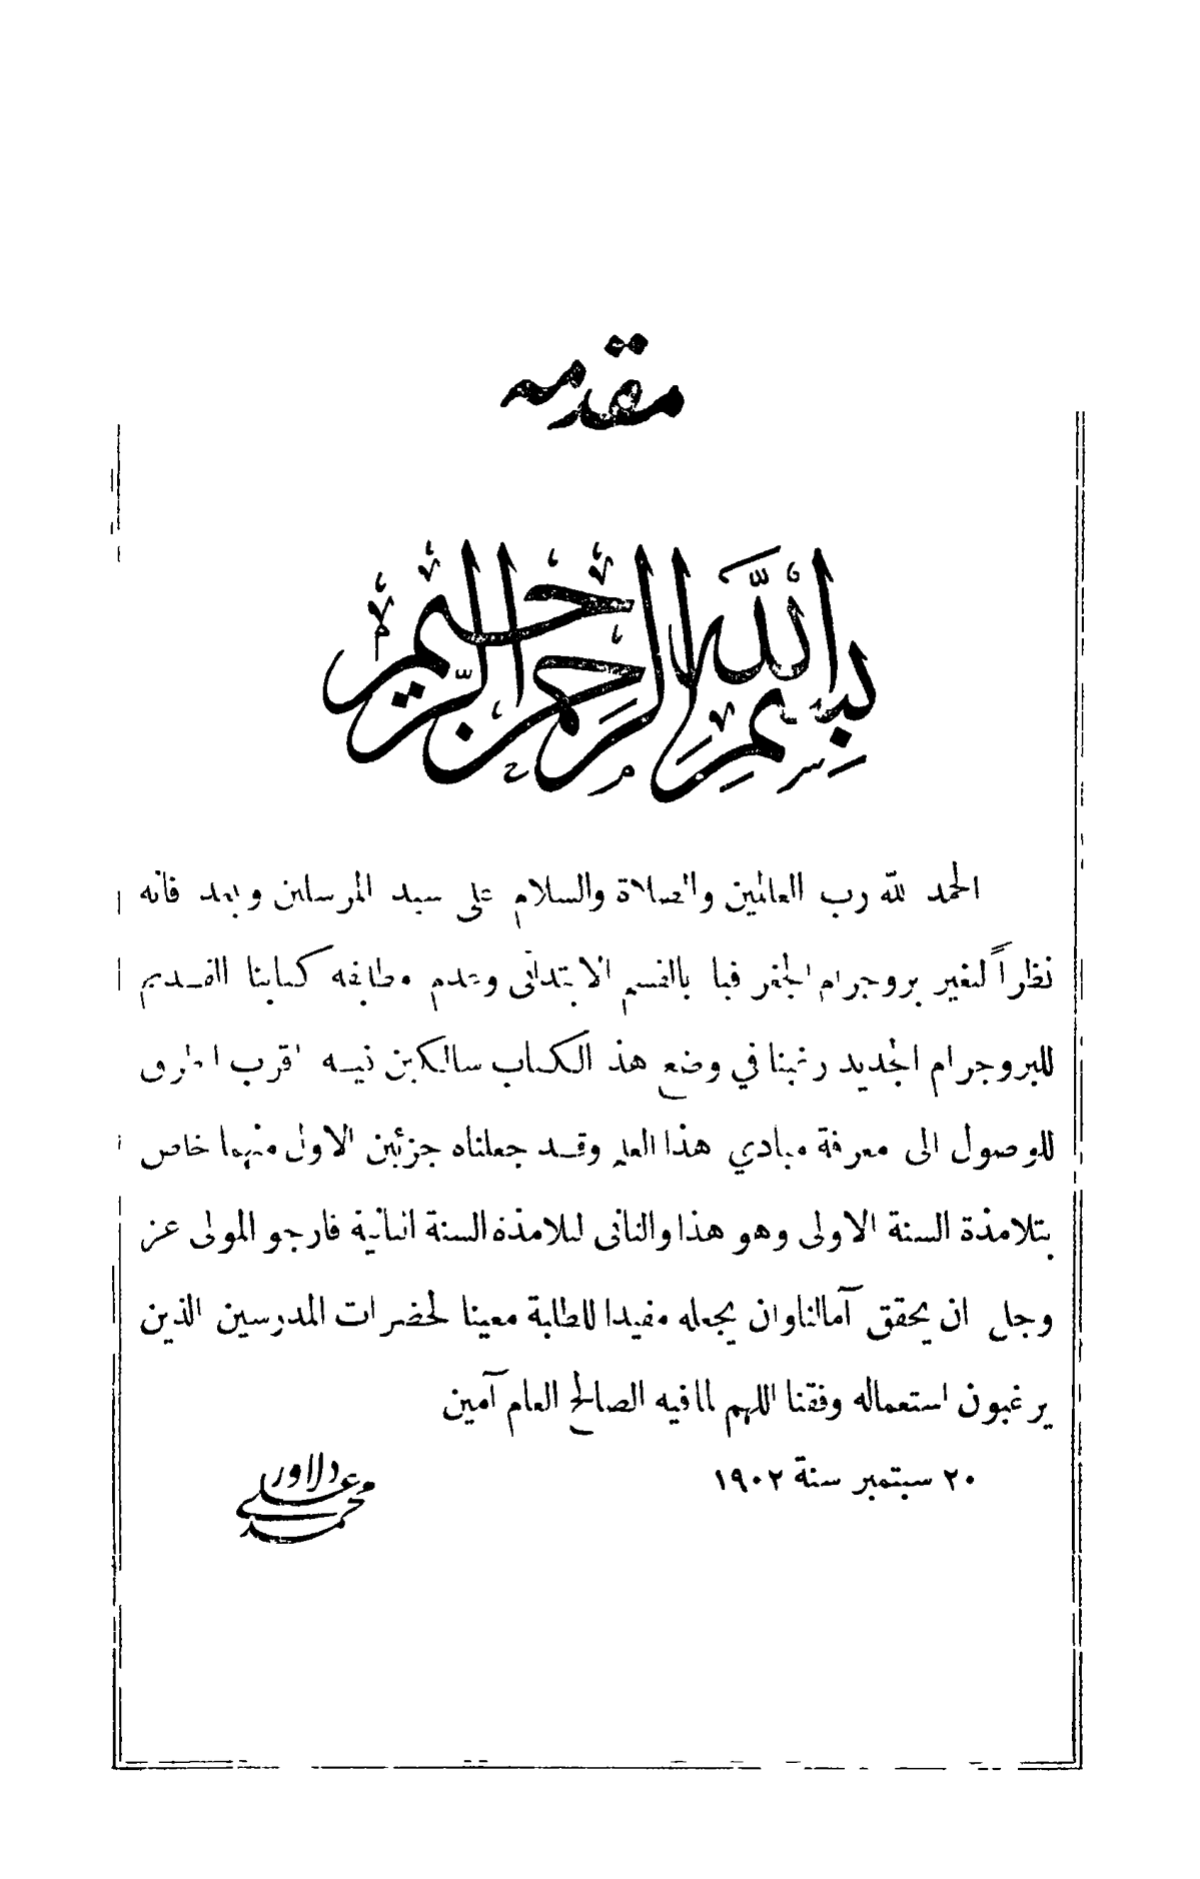 مقدمه
بسم الله الرحمن الرحيم
الحمد لله رب العالمين والصلاة والسلام على سيد المرسلين وبعد فانه
نظراً لتغير بروجرام الجغرفيا بالقسم الابتدائى وعدم مطابقه كتابنا القديم
للبروجرام الجديد رغبنا في وضع هذ الكتاب سالكين فيه اقرب الطرق
للوصول الى معرفة مبادي هذا العلم وقد جعلناه جزئين الاول منهما خاص
بتلامذة السنة الاولى وهو هذا والثانى لتلامذة السنة الثانية فارجو المولى عز
وجل ان يحقق آمالنا وان يجعله مفيدا للطلبة معينا لحضرات المدرسين الذين
يرغبون استعماله وفقنا اللهم لما فيه الصالح العام آمين
٢٠ سبتمبر سنة ١٩٠٢
محمد على دلاور